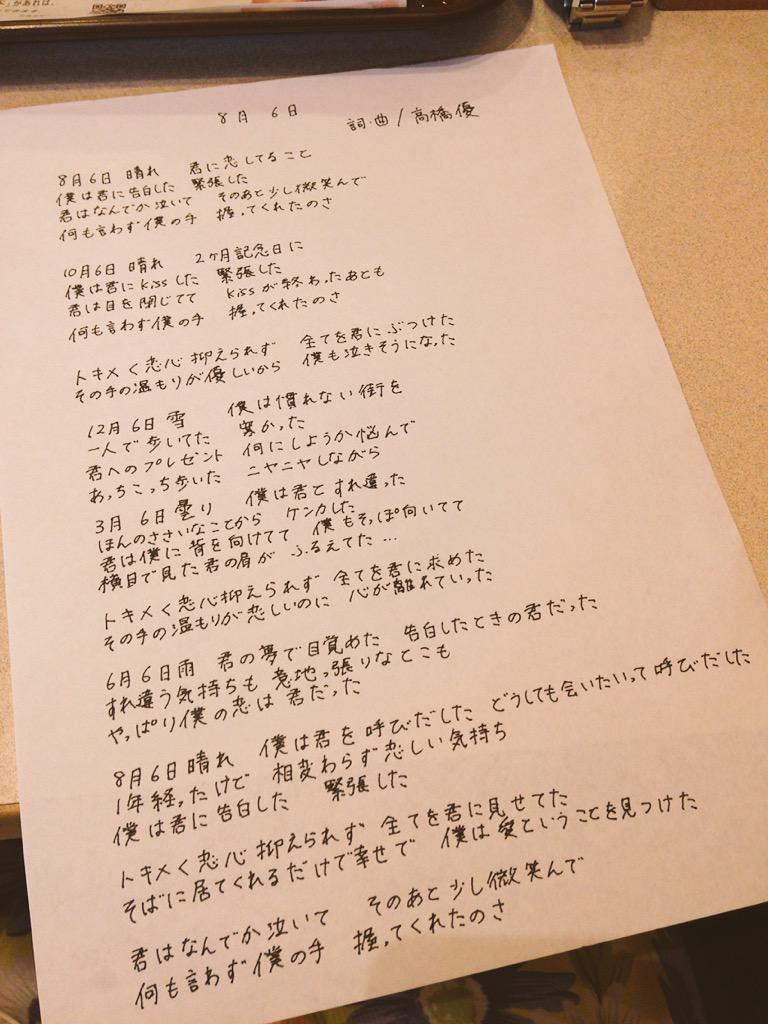 があれば、
8月 6日
詞・曲/高橋優
8月6日 晴れ 君に恋してること
僕は君に告白した 緊張した
君はなんでか泣いて そのあと少し微笑んで
何も言わず僕の手 握ってくれたのさ
10月6日 晴れ 2ケ月記念日に
僕は君にkissした 緊張した
君は目を閉じてて kissが終わったあとも
何も言わず僕の手 握ってくれたのさ
トキメく恋心抑えられず 全てを君にぶつけた
その手の温もりが優しいから 僕も泣きそうになった
12月6日 雪 僕は慣れない街を
一人で歩いてた 寒かった
君へのプレゼント 何にしようか悩んで
あっちこっち歩いた ニヤニヤしながら
3月 6日 曇り 僕は君とすれ違った
ほんのささいなことから ケンカした
君は僕に背を向けてて 僕もそっぽ向いてて
横目で見た君の肩が ふるえてた…
トキメく恋心抑えられず 全てを君に求めた
その手の温もりが恋しいのに 心が離れていった
6月6日雨 君の夢で目覚めた 告白したときの君だった
すれ違う気持ちも 意地っ張りなとこも
やっぱり僕の恋は 君だった
8月6日晴れ 僕は君を呼びだした どうしても会いたいって呼びだした
1年経ったけど 相変わらず恋しい気持ち
僕は君に告白した 緊張した
トキメく恋心抑えられず 全てを君に見せてた
そばに居てくれるだけで幸せで 僕は愛ということを見つけた
君はなんでか泣いて そのあと少し微笑んで
何も言わず僕の手 握ってくれたのさ